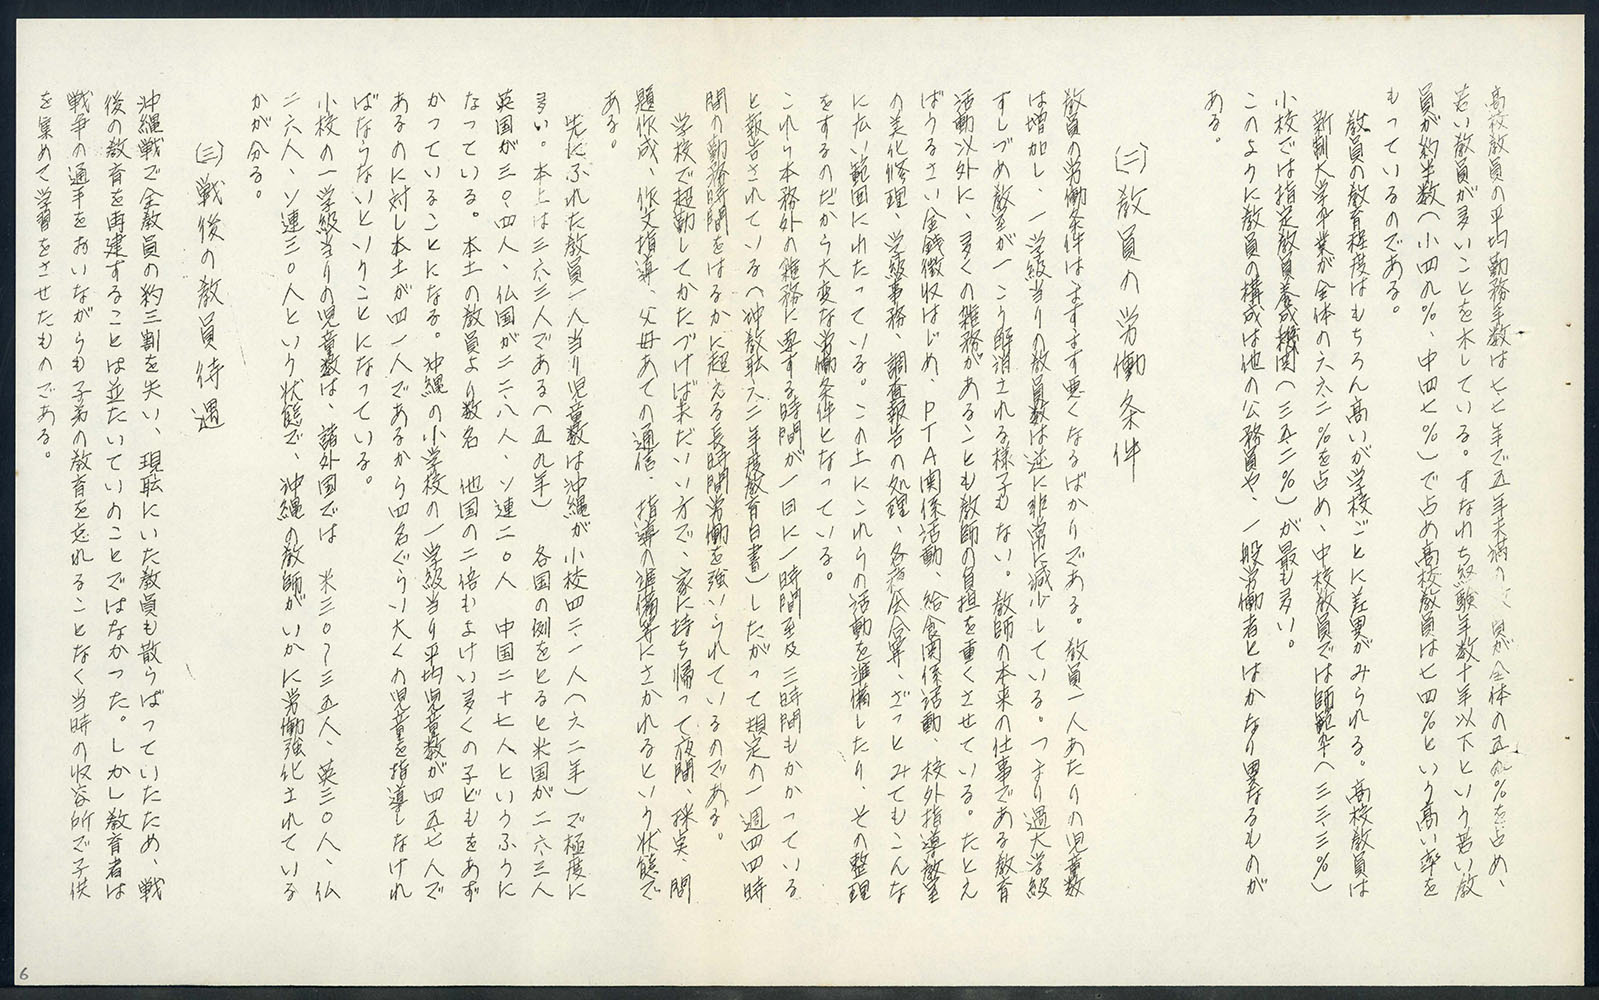 高校教員の平均勤務年数は七・七年で五年未満の教員が全体の五九%を占め、
若い教員が多いことを示している。すなわち経験年数十年以下という若い教
員が約半数(小四九%、中四七%)で占め高校教員は七四%という高い率を
もっているのである。
教員の教育程度はもちろん高いが学校ごとに差異がみられる。高校教員は
新制大学卒業が全体の六六・二%を占め、中校教員では師範卒(三三・三%)
小校では指定教員養成機関(三五・二%)が最も多い。
このように教員の構成は他の公務員や、一般労働者とはかなり異なるものが
ある。
(二)教員の労働条件
教員の労働条件はますます悪くなるばかりである。教員一人あたりの児童数
は増加し、一学級当りの教員数は逆に非常に減少している。つまり過大学級
すしづめ教室が一こう解消される様子もない。教師の本来の仕事である教育
活動以外に、多くの雑務があることも教師の負担を重くさせている。たとえ
ばうるさい金銭徴収はじめ、PTA関係活動、給食関係活動、校外指導教室
の美化修理、学級事務、調査報告の処理、各種会合等、ざっとみてもこんな
に広い範囲にわたっている。この上にこれらの活動を準備したり、その整理
をするのだから大変な労働条件となっている。
これらの本務外の雑務に要する時間が一日に一時間至及三時間もかかっている
と報告されている(沖教職六二年度教育白書)したがって規定の一週四四時
間の勤務時間をはるかに超える長時間労働を強いられているのである。
学校で超勤してかたづけばまだいい方で、家に持ち帰って夜間、採点、問
題作成、作文指導、父母あての通信、指導の準備等にさかれるという状態で
ある。
先にふれた教員一人当り児童数は沖縄が小校四二・一人(六二年)で極度に
多い。本土は三六・三人である(五九年)各国の例をとると米国が二六・三人
英国が三〇・四人、仏国が二二・八人、ソ連二〇人 中国二十七人というふうに
なっている。本土の教員より数名 他国の二倍もよけい多くの子どもをあず
かっていることになる。沖縄の小学校の一学級当り平均児童数が四五・七人で
あるのに対し本土が四一人であるから四名ぐらい大くの児童を指導しなけれ
ばならないということになっている。
小校の一学級当りの児童数は、諸外国では 米三〇~三五人、英三〇人、仏
二六人、ソ連三〇人という状態で、沖縄の教師がいかに労働強化されている
かが分る。
(三)戦後の教員待遇
沖縄戦で全教員の約三割を失い、現職にいた教員も散らばっていたため、戦
後の教育を再建することは並たいていのことではなかった。しかし教育者は
戦争の通手をおいながらも子弟の教育を忘れることなく当時の収容所で子供
を集めて学習をさせたものである。
6